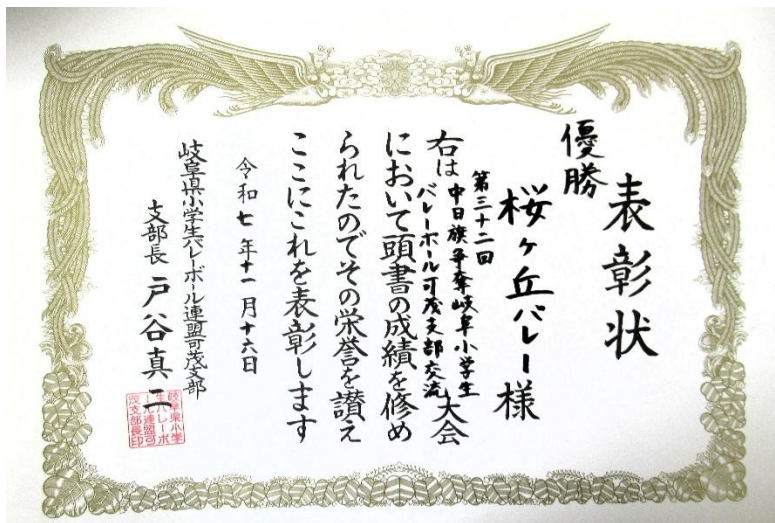 表彰状
優勝
桜ヶ丘バレー様
右は第三十二回中日旗争奪岐阜小学生バレーボール可茂支部交流大会
において頭書の成績を修め
られたのでその栄誉を讃え
ここにこれを表彰します
令和七年十一月十六日
岐阜県小学生バレーボール連盟可茂支部
支部長 戸谷真二
岐阜県小学
生バレーボ
ール連盟可
茂支部長印